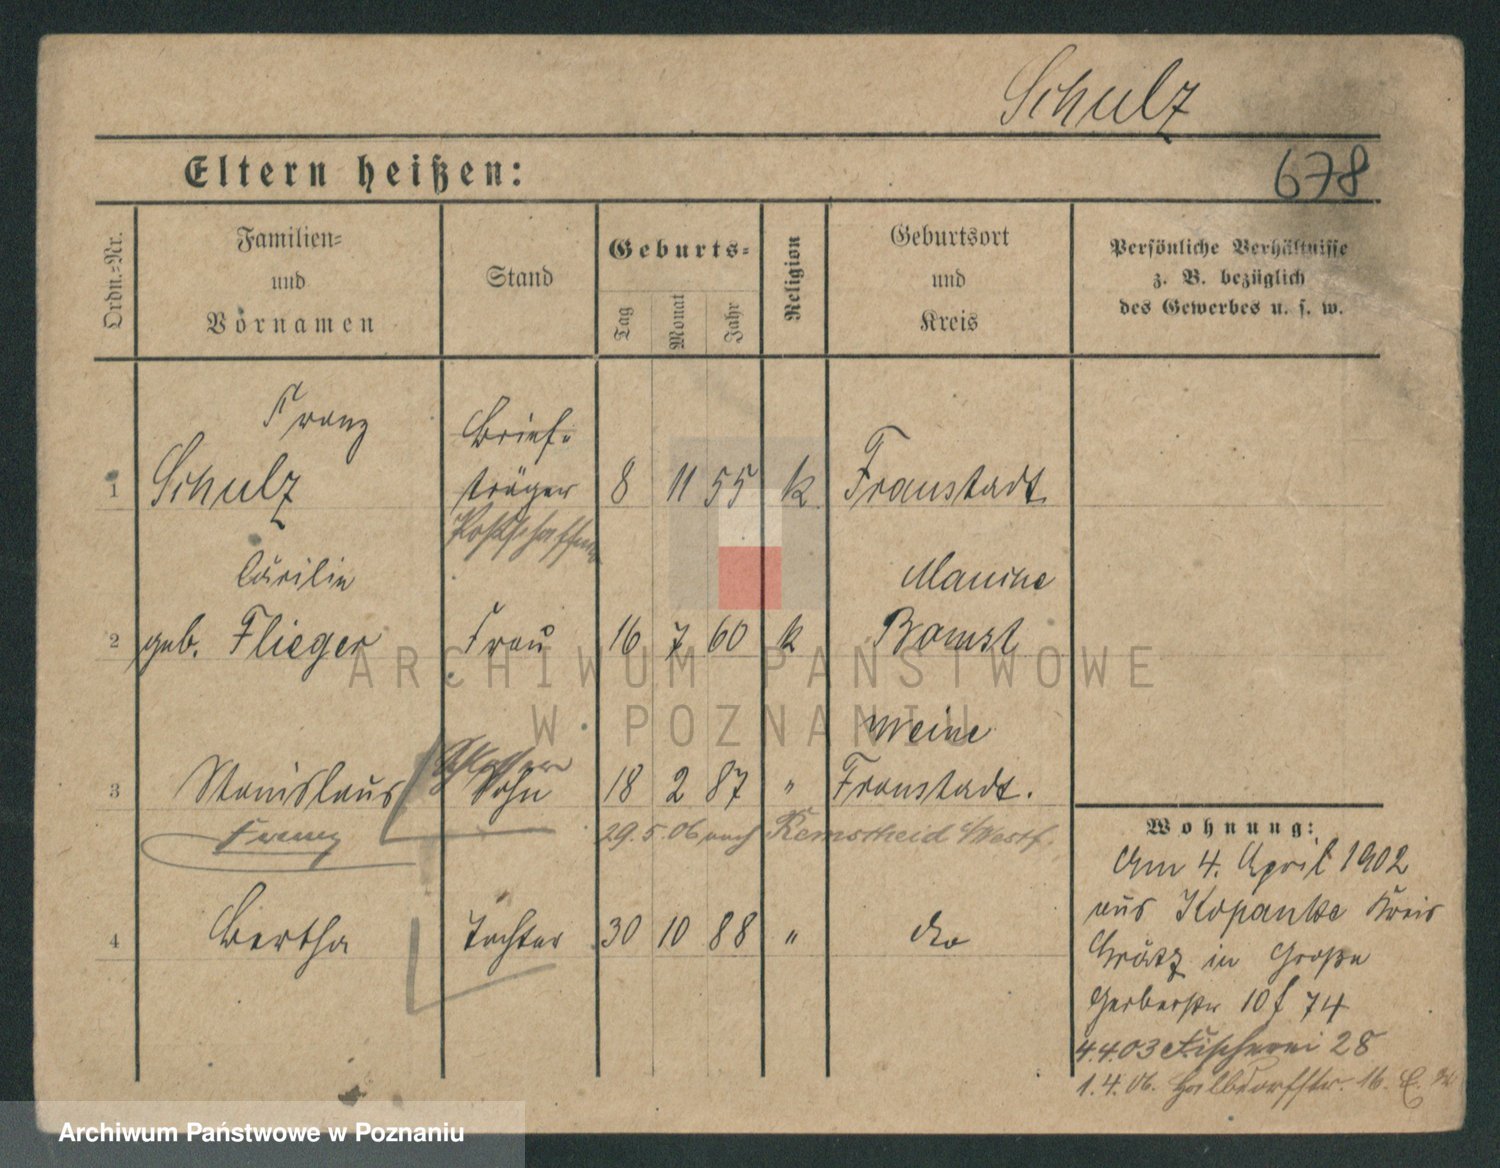 Schulz
Eltern heißen:
678
Ordn.-Nr.
Familien-
und
Vornamen
Stand
Geburts-
Tag
Monat
Jahr
Religion
Geburtsort
und
Kreis
Persönliche Verhältnisse
z. B. bezüglich
des Gewerbes u. s. w.
Franz
Brief-
1 Schulz träger 8 11 55 k Fraustadt
Postschaffner
Cäcilie Mauche
2 geb. Flieger Frau 16 7 60 k Bomst
Weine
3 Stanislaus Sohn 18 2 87 " Fraustadt.
Franz 29.5.06 nach Remscheid i/Westf.
4 Bertha Tochter 30 10 88 " dto
Wohnung:
Am 4. April 1902
aus Kopanke Kreis
Grätz in Große
Gerberstr 10 f 74
4.4.03 Fischerei 28
1.4.06. Halbdorfstr. 16.
ARCHIWUM PAŃSTWOWE
W POZNANIU
Archiwum Państwowe w Poznaniu